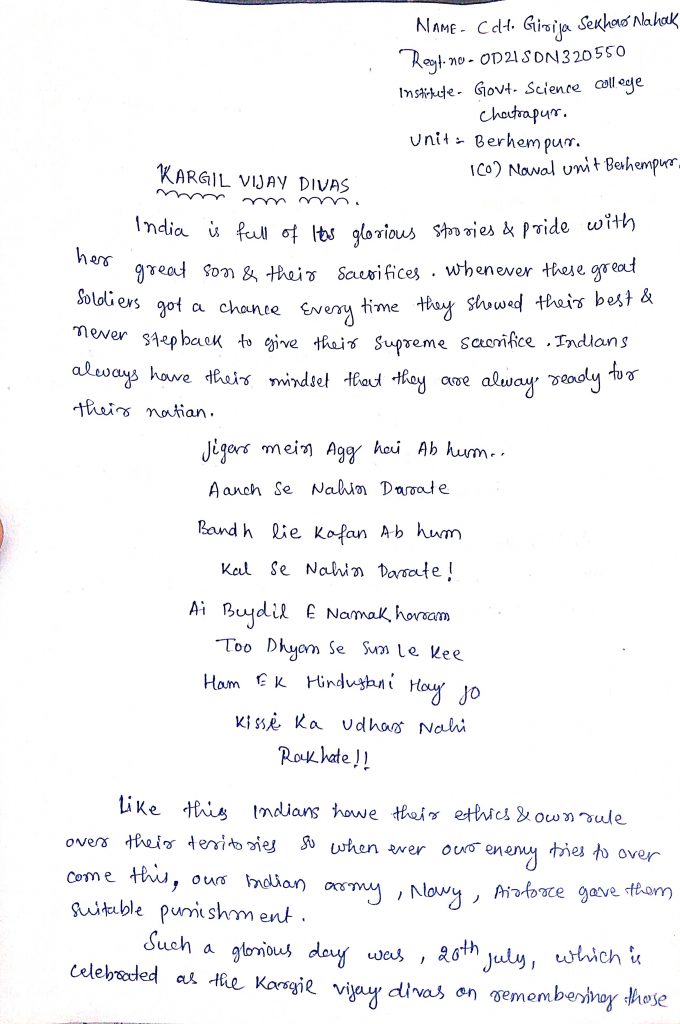 NAME - Cdt. Girija Sekhar Nahak
Regt. no - OD21SDN320550
Institute - Govt. Science college
Chatrapur.
Unit = Berhempur.
1(O) Naval unit Berhempur.
KARGIL VIJAY DIVAS.
India is full of Its glorious stories & pride with
her great son & their sacrifices. Whenever these great
Soldiers got a chance Every time they showed their best &
never stepback to give their Supreme sacrifice. Indians
always have their mindset that they are alway ready for
their natian.
Jigar mein Agg hai Ab hum..
Aanch Se Nahin Darate
Bandh lie Kafan Ab hum
Kal Se Nahin Darate!
Ai Bujdil E Namak haram
Too Dhyan Se Sun Le Kee
Ham EK Hindustani Hay Jo
Kisse Ka Udhar Nahi
Rakhate!!
Like this Indians have their ethics & own rule
over their teritories so when ever our enemy tries to over
come this, our Indian army, Navy, Airforce gave them
Suitable punishment.
Such a glorious day was, 26th july, which is
celebrated as the Kargil vijay divas on remembering those